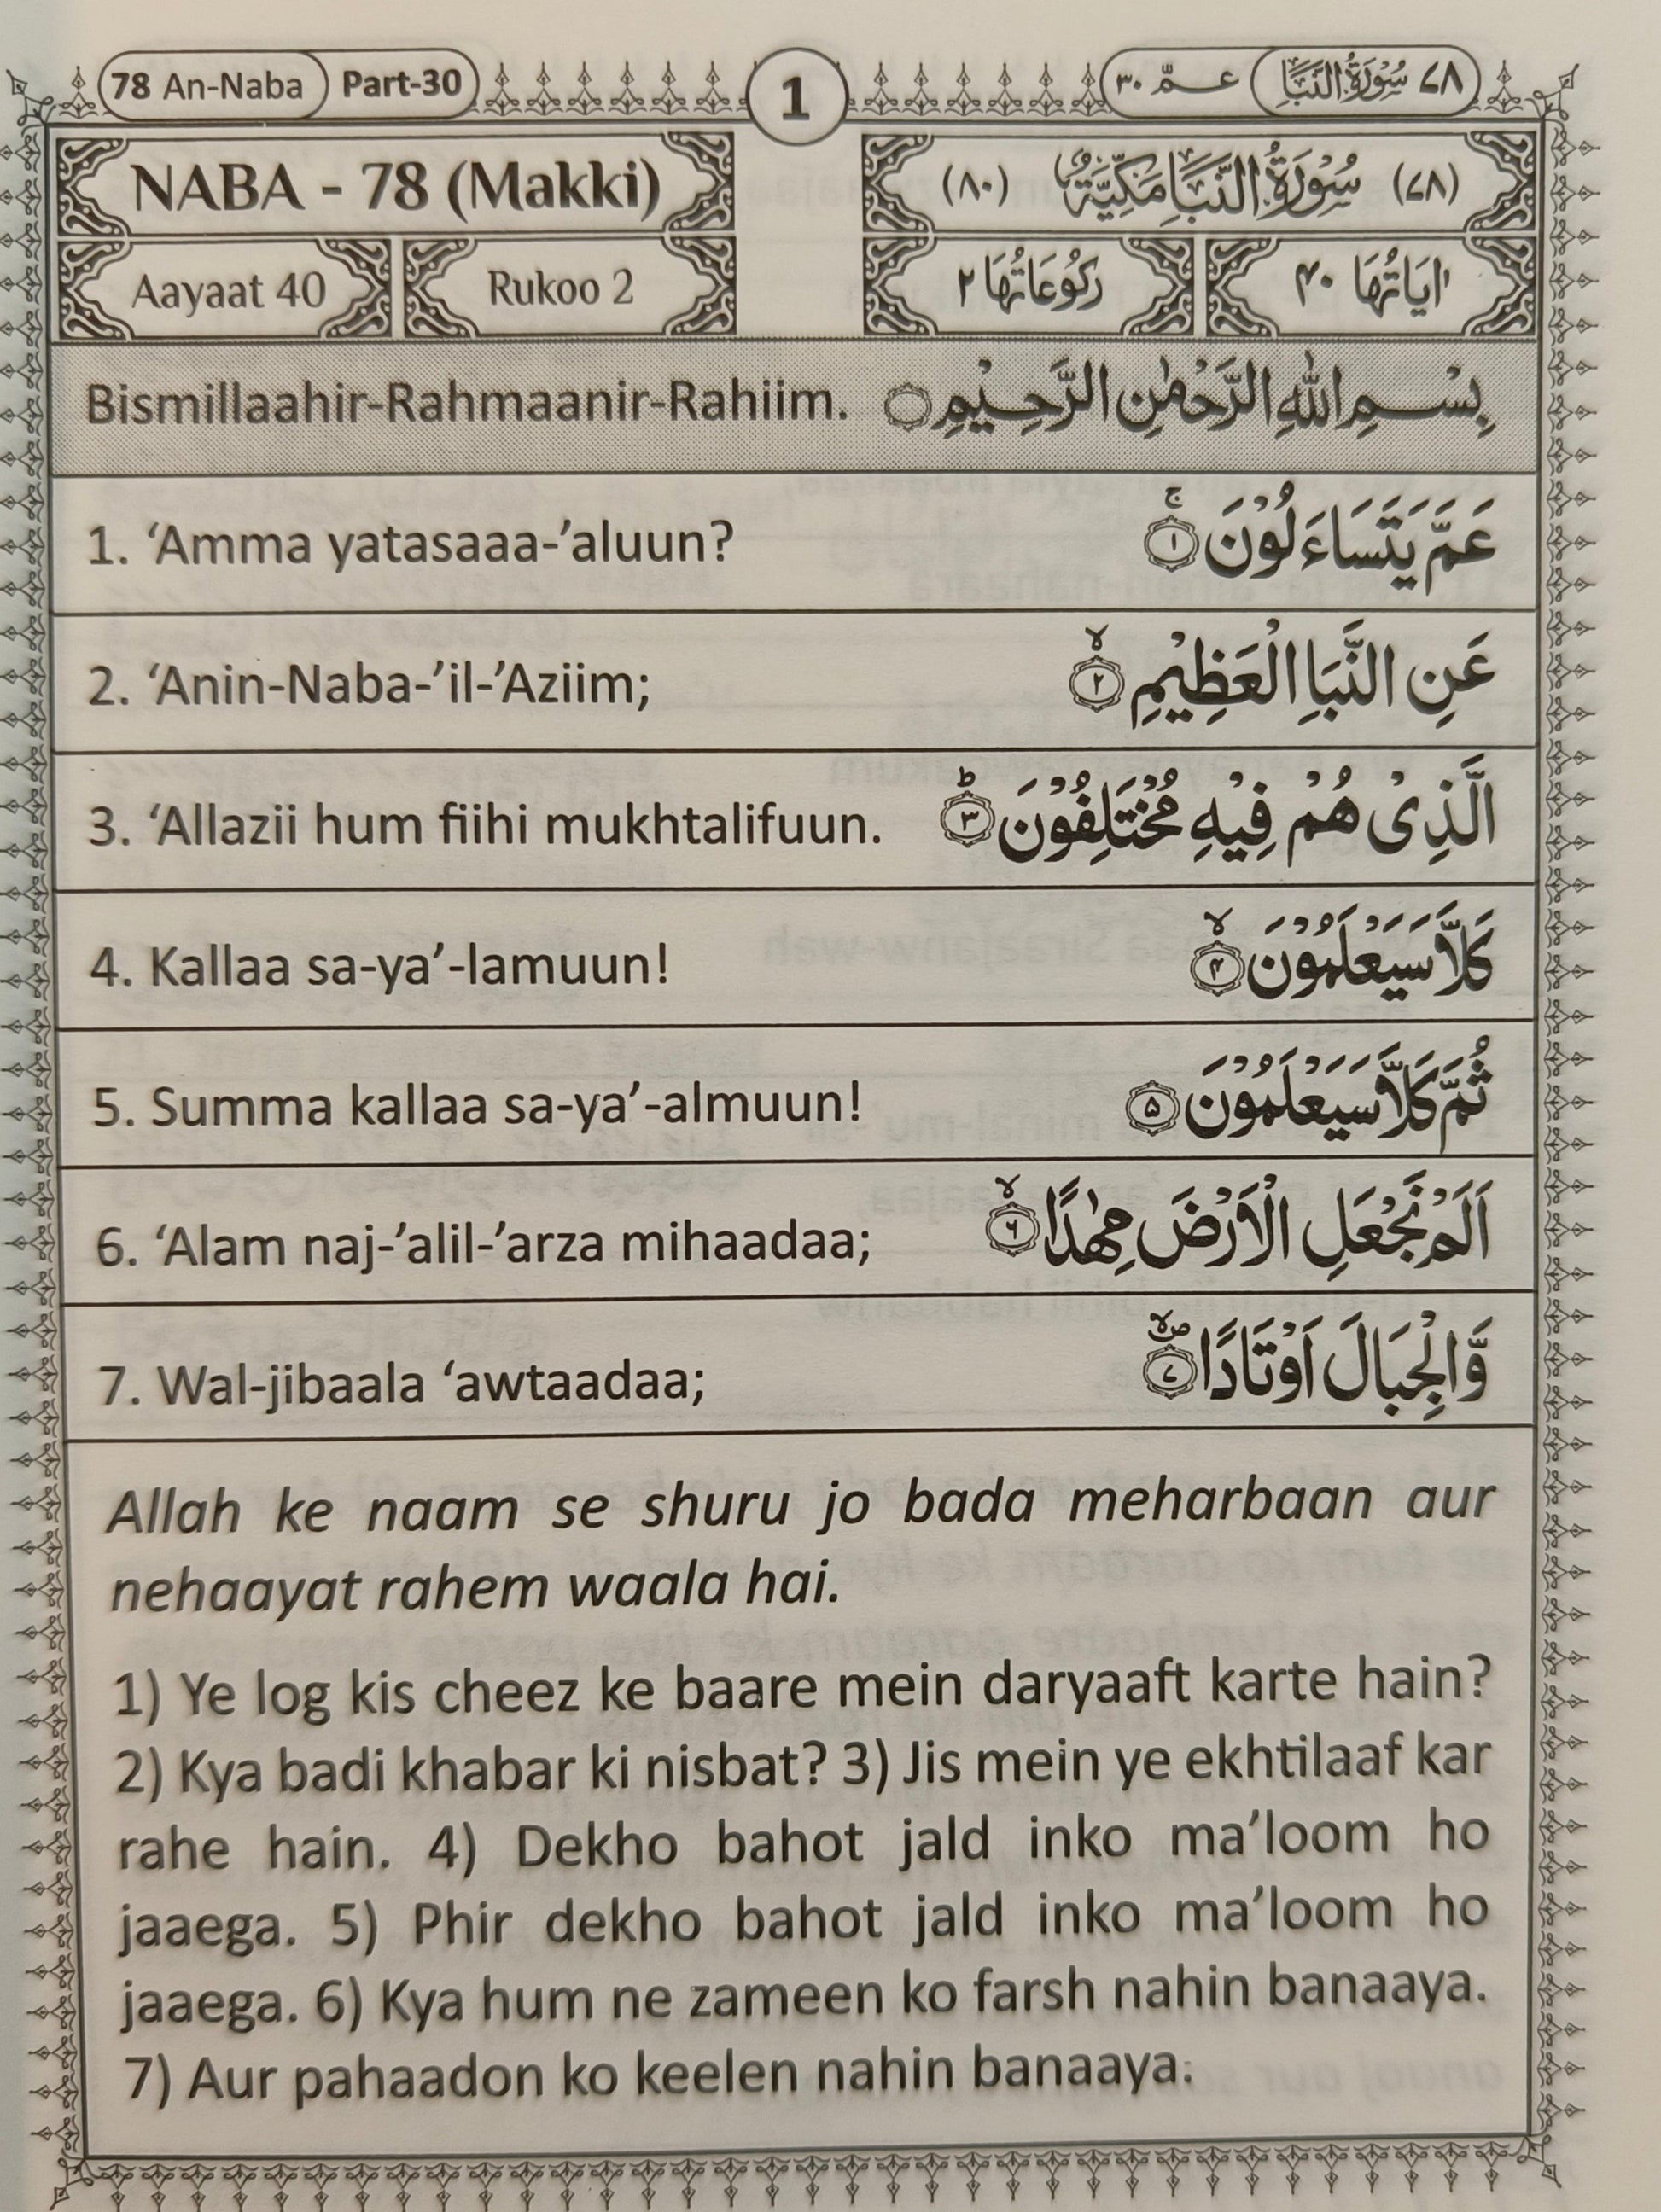 78 An-Naba Part-30 1 عـمّ ٣٠ سُوْرَةُ النَّبَاِ ٧٨
NABA - 78 (Makki) (٧٨) سُوْرَةُ النَّبَاِ مَكِّيَّةٌ (٨٠)
Aayaat 40 Rukoo 2 اٰيَاتُهَا ۴۰ رُكُوْعَاتُهَا ۲
Bismillaahir-Rahmaanir-Rahiim. بِسْمِ اللّٰهِ الرَّحْمٰنِ الرَّحِيْمِ
1. ‘Amma yatasaaa-’aluun? عَمَّ يَتَسَآءَلُوْنَ ۚ‏﴿۱﴾
2. ‘Anin-Naba-’il-’Aziim; عَنِ النَّبَاِ الْعَظِيْمِ ۙ‏﴿۲﴾
3. ‘Allazii hum fiihi mukhtalifuun. الَّذِىْ هُمْ فِيْهِ مُخْتَلِفُوْنَ ؕ‏﴿۳﴾
4. Kallaa sa-ya’-lamuun! كَلَّا سَيَعْلَمُوْنَ ۙ‏﴿۴﴾
5. Summa kallaa sa-ya’-almuun! ثُمَّ كَلَّا سَيَعْلَمُوْنَ ﴿۵﴾
6. ‘Alam naj-’alil-’arza mihaadaa; اَلَمْ نَجْعَلِ الْاَرْضَ مِهٰدًا ۙ‏﴿۶﴾
7. Wal-jibaala ‘awtaadaa; وَّالْجِبَالَ اَوْتَادًا ۙ‏﴿۷﴾
Allah ke naam se shuru jo bada meharbaan aur
nehaayat rahem waala hai.
1) Ye log kis cheez ke baare mein daryaaft karte hain?
2) Kya badi khabar ki nisbat? 3) Jis mein ye ekhtilaaf kar
rahe hain. 4) Dekho bahot jald inko ma’loom ho
jaaega. 5) Phir dekho bahot jald inko ma’loom ho
jaaega. 6) Kya hum ne zameen ko farsh nahin banaaya.
7) Aur pahaadon ko keelen nahin banaaya.